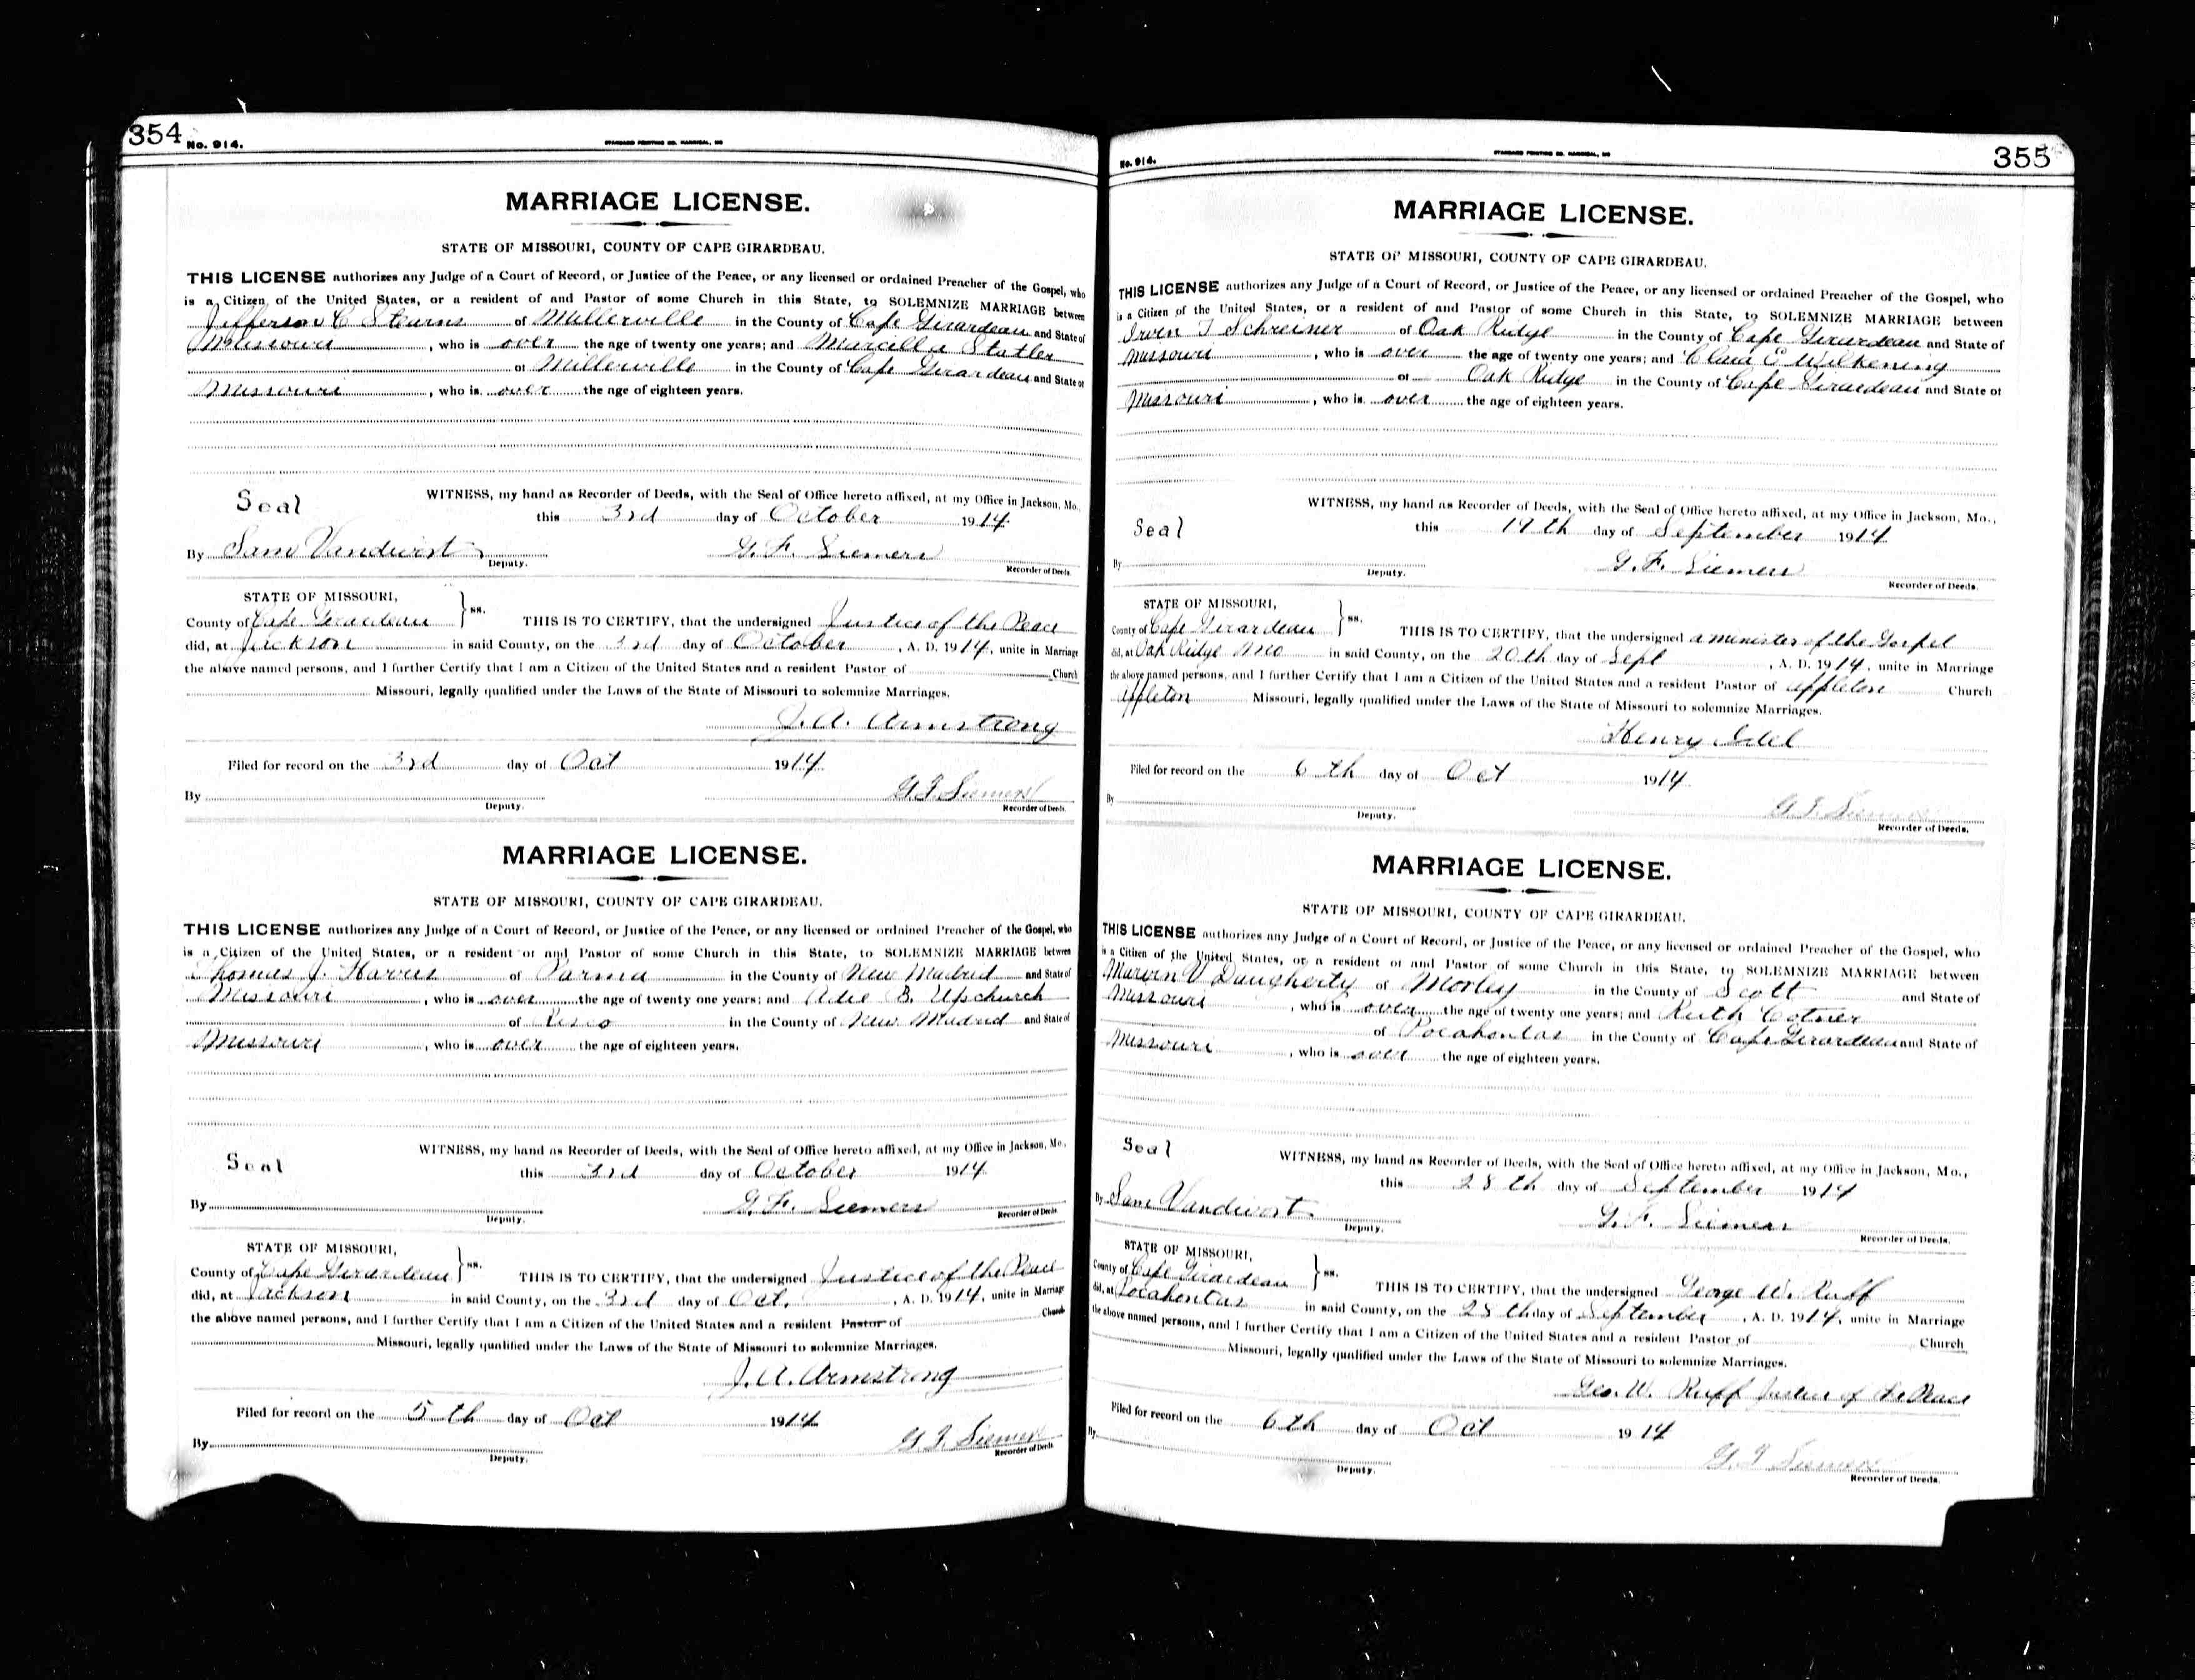 354 No. 914. STANDARD PRINTING CO. HANNIBAL, MO
MARRIAGE LICENSE.
STATE OF MISSOURI, COUNTY OF CAPE GIRARDEAU.
THIS LICENSE authorizes any Judge of a Court of Record, or Justice of the Peace, or any licensed or ordained Preacher of the Gospel, who
is a Citizen of the United States, or a resident of and Pastor of some Church in this State, to SOLEMNIZE MARRIAGE between
Jefferson C Stearns of Millerville in the County of Cape Girardeau and State of
Missouri, who is over the age of twenty one years; and Marcilla Statler
of Millerville in the County of Cape Girardeau and State of
Missouri, who is over the age of eighteen years.
Seal WITNESS, my hand as Recorder of Deeds, with the Seal of Office hereto affixed, at my Office in Jackson, Mo.,
this 3rd day of October 1914
By Sam Vandivort G. F. Siemers
Deputy. Recorder of Deeds.
STATE OF MISSOURI,
County of Cape Girardeau } ss. THIS IS TO CERTIFY, that the undersigned Justice of the Peace
did, at Jackson in said County, on the 3rd day of October, A. D. 1914, unite in Marriage
the above named persons, and I further Certify that I am a Citizen of the United States and a resident Pastor of Church
Missouri, legally qualified under the Laws of the State of Missouri to solemnize Marriages.
J. A. Armstrong
Filed for record on the 3rd day of Oct 1914
By G. F. Siemers
Deputy. Recorder of Deeds.
MARRIAGE LICENSE.
STATE OF MISSOURI, COUNTY OF CAPE GIRARDEAU.
THIS LICENSE authorizes any Judge of a Court of Record, or Justice of the Peace, or any licensed or ordained Preacher of the Gospel, who
is a Citizen of the United States, or a resident of and Pastor of some Church in this State, to SOLEMNIZE MARRIAGE between
Thomas J. Harris of Parma in the County of New Madrid and State of
Missouri, who is over the age of twenty one years; and Adie B. Upchurch
of Risco in the County of New Madrid and State of
Missouri, who is over the age of eighteen years.
Seal WITNESS, my hand as Recorder of Deeds, with the Seal of Office hereto affixed, at my Office in Jackson, Mo.,
this 3rd day of October 1914
By G. F. Siemers
Deputy. Recorder of Deeds.
STATE OF MISSOURI,
County of Cape Girardeau } ss. THIS IS TO CERTIFY, that the undersigned Justice of the Peace
did, at Jackson in said County, on the 3rd day of Oct., A. D. 1914, unite in Marriage
the above named persons, and I further Certify that I am a Citizen of the United States and a resident Pastor of Church
Missouri, legally qualified under the Laws of the State of Missouri to solemnize Marriages.
J. A. Armstrong
Filed for record on the 5th day of Oct 1914
By G. F. Siemers
Deputy. Recorder of Deeds
No. 914. STANDARD PRINTING CO. HANNIBAL, MO 355
MARRIAGE LICENSE.
STATE OF MISSOURI, COUNTY OF CAPE GIRARDEAU.
THIS LICENSE authorizes any Judge of a Court of Record, or Justice of the Peace, or any licensed or ordained Preacher of the Gospel, who
is a Citizen of the United States, or a resident of and Pastor of some Church in this State, to SOLEMNIZE MARRIAGE between
Irven T Schreiner of Oak Ridge in the County of Cape Girardeau and State of
Missouri, who is over the age of twenty one years; and Clara E Wilkening
of Oak Ridge in the County of Cape Girardeau and State of
Missouri, who is over the age of eighteen years.
Seal WITNESS, my hand as Recorder of Deeds, with the Seal of Office hereto affixed, at my Office in Jackson, Mo.,
this 19th day of September 1914
By G. F. Siemers
Deputy. Recorder of Deeds.
STATE OF MISSOURI,
County of Cape Girardeau } ss. THIS IS TO CERTIFY, that the undersigned a minister of the Gospel
did, at Oak Ridge Mo in said County, on the 20th day of Sept, A. D. 1914, unite in Marriage
the above named persons, and I further Certify that I am a Citizen of the United States and a resident Pastor of Appleton Church
Appleton Missouri, legally qualified under the Laws of the State of Missouri to solemnize Marriages.
Henry
Filed for record on the 6th day of Oct 1914
By G. F. Siemers
Deputy. Recorder of Deeds.
MARRIAGE LICENSE.
STATE OF MISSOURI, COUNTY OF CAPE GIRARDEAU.
THIS LICENSE authorizes any Judge of a Court of Record, or Justice of the Peace, or any licensed or ordained Preacher of the Gospel, who
is a Citizen of the United States, or a resident of and Pastor of some Church in this State, to SOLEMNIZE MARRIAGE between
Marvin V Daugherty of Morley in the County of Scott and State of
Missouri, who is over the age of twenty one years; and Ruth Cotner
of Pocahontas in the County of Cape Girardeau and State of
Missouri, who is over the age of eighteen years.
Seal WITNESS, my hand as Recorder of Deeds, with the Seal of Office hereto affixed, at my Office in Jackson, Mo.,
this 28th day of September 1914
By Sam Vandivort G. F. Siemers
Deputy. Recorder of Deeds.
STATE OF MISSOURI,
County of Cape Girardeau } ss. THIS IS TO CERTIFY, that the undersigned George W. Ruff
did, at Pocahontas in said County, on the 28th day of September, A. D. 1914, unite in Marriage
the above named persons, and I further Certify that I am a Citizen of the United States and a resident Pastor of Church
Missouri, legally qualified under the Laws of the State of Missouri to solemnize Marriages.
Geo. W. Ruff Justice of the Peace
Filed for record on the 6th day of Oct 1914
By G. F. Siemers
Deputy. Recorder of Deeds.